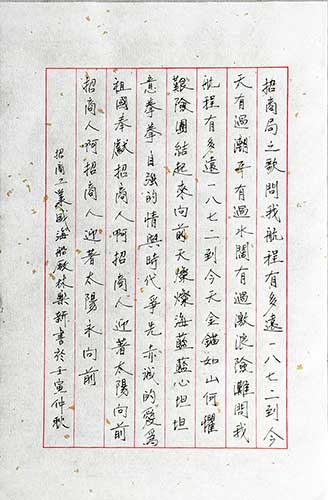 招商局之歌問我航程有多遠一八七二到今
天有過潮平有過水闊有過激流險難問我
航程有多遠一八七二到今天金錨如山何懼
艱險團結起來向前天燦燦海藍藍心坦坦
意拳拳自強的情與時代爭先赤誠的愛為
祖國奉獻招商人啊招商人迎著太陽向前
招商人啊招商人迎著太陽永向前
招商工業威海船林樂新書於壬寅仲秋